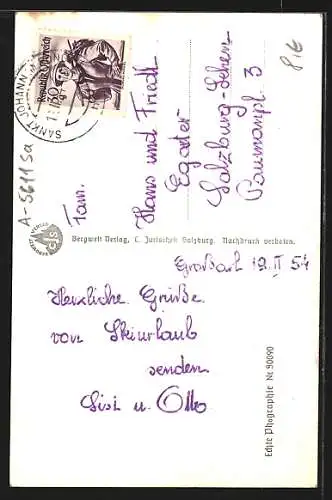 816
SANKT JOHANN
Republik Österreich
A-5611 Sa
Fam.
Hans und Friedl
Egader
Salzburg-Lehen
Paumannpl 3
Bergwelt Verlag, C. Jurischek Salzburg. Nachdruck verboten.
cjs
Großarl 19. II 54
Herzliche Grüße
von Skiurlaub
senden
Sisi u. Otto
Echte Photographie Nr. 90690